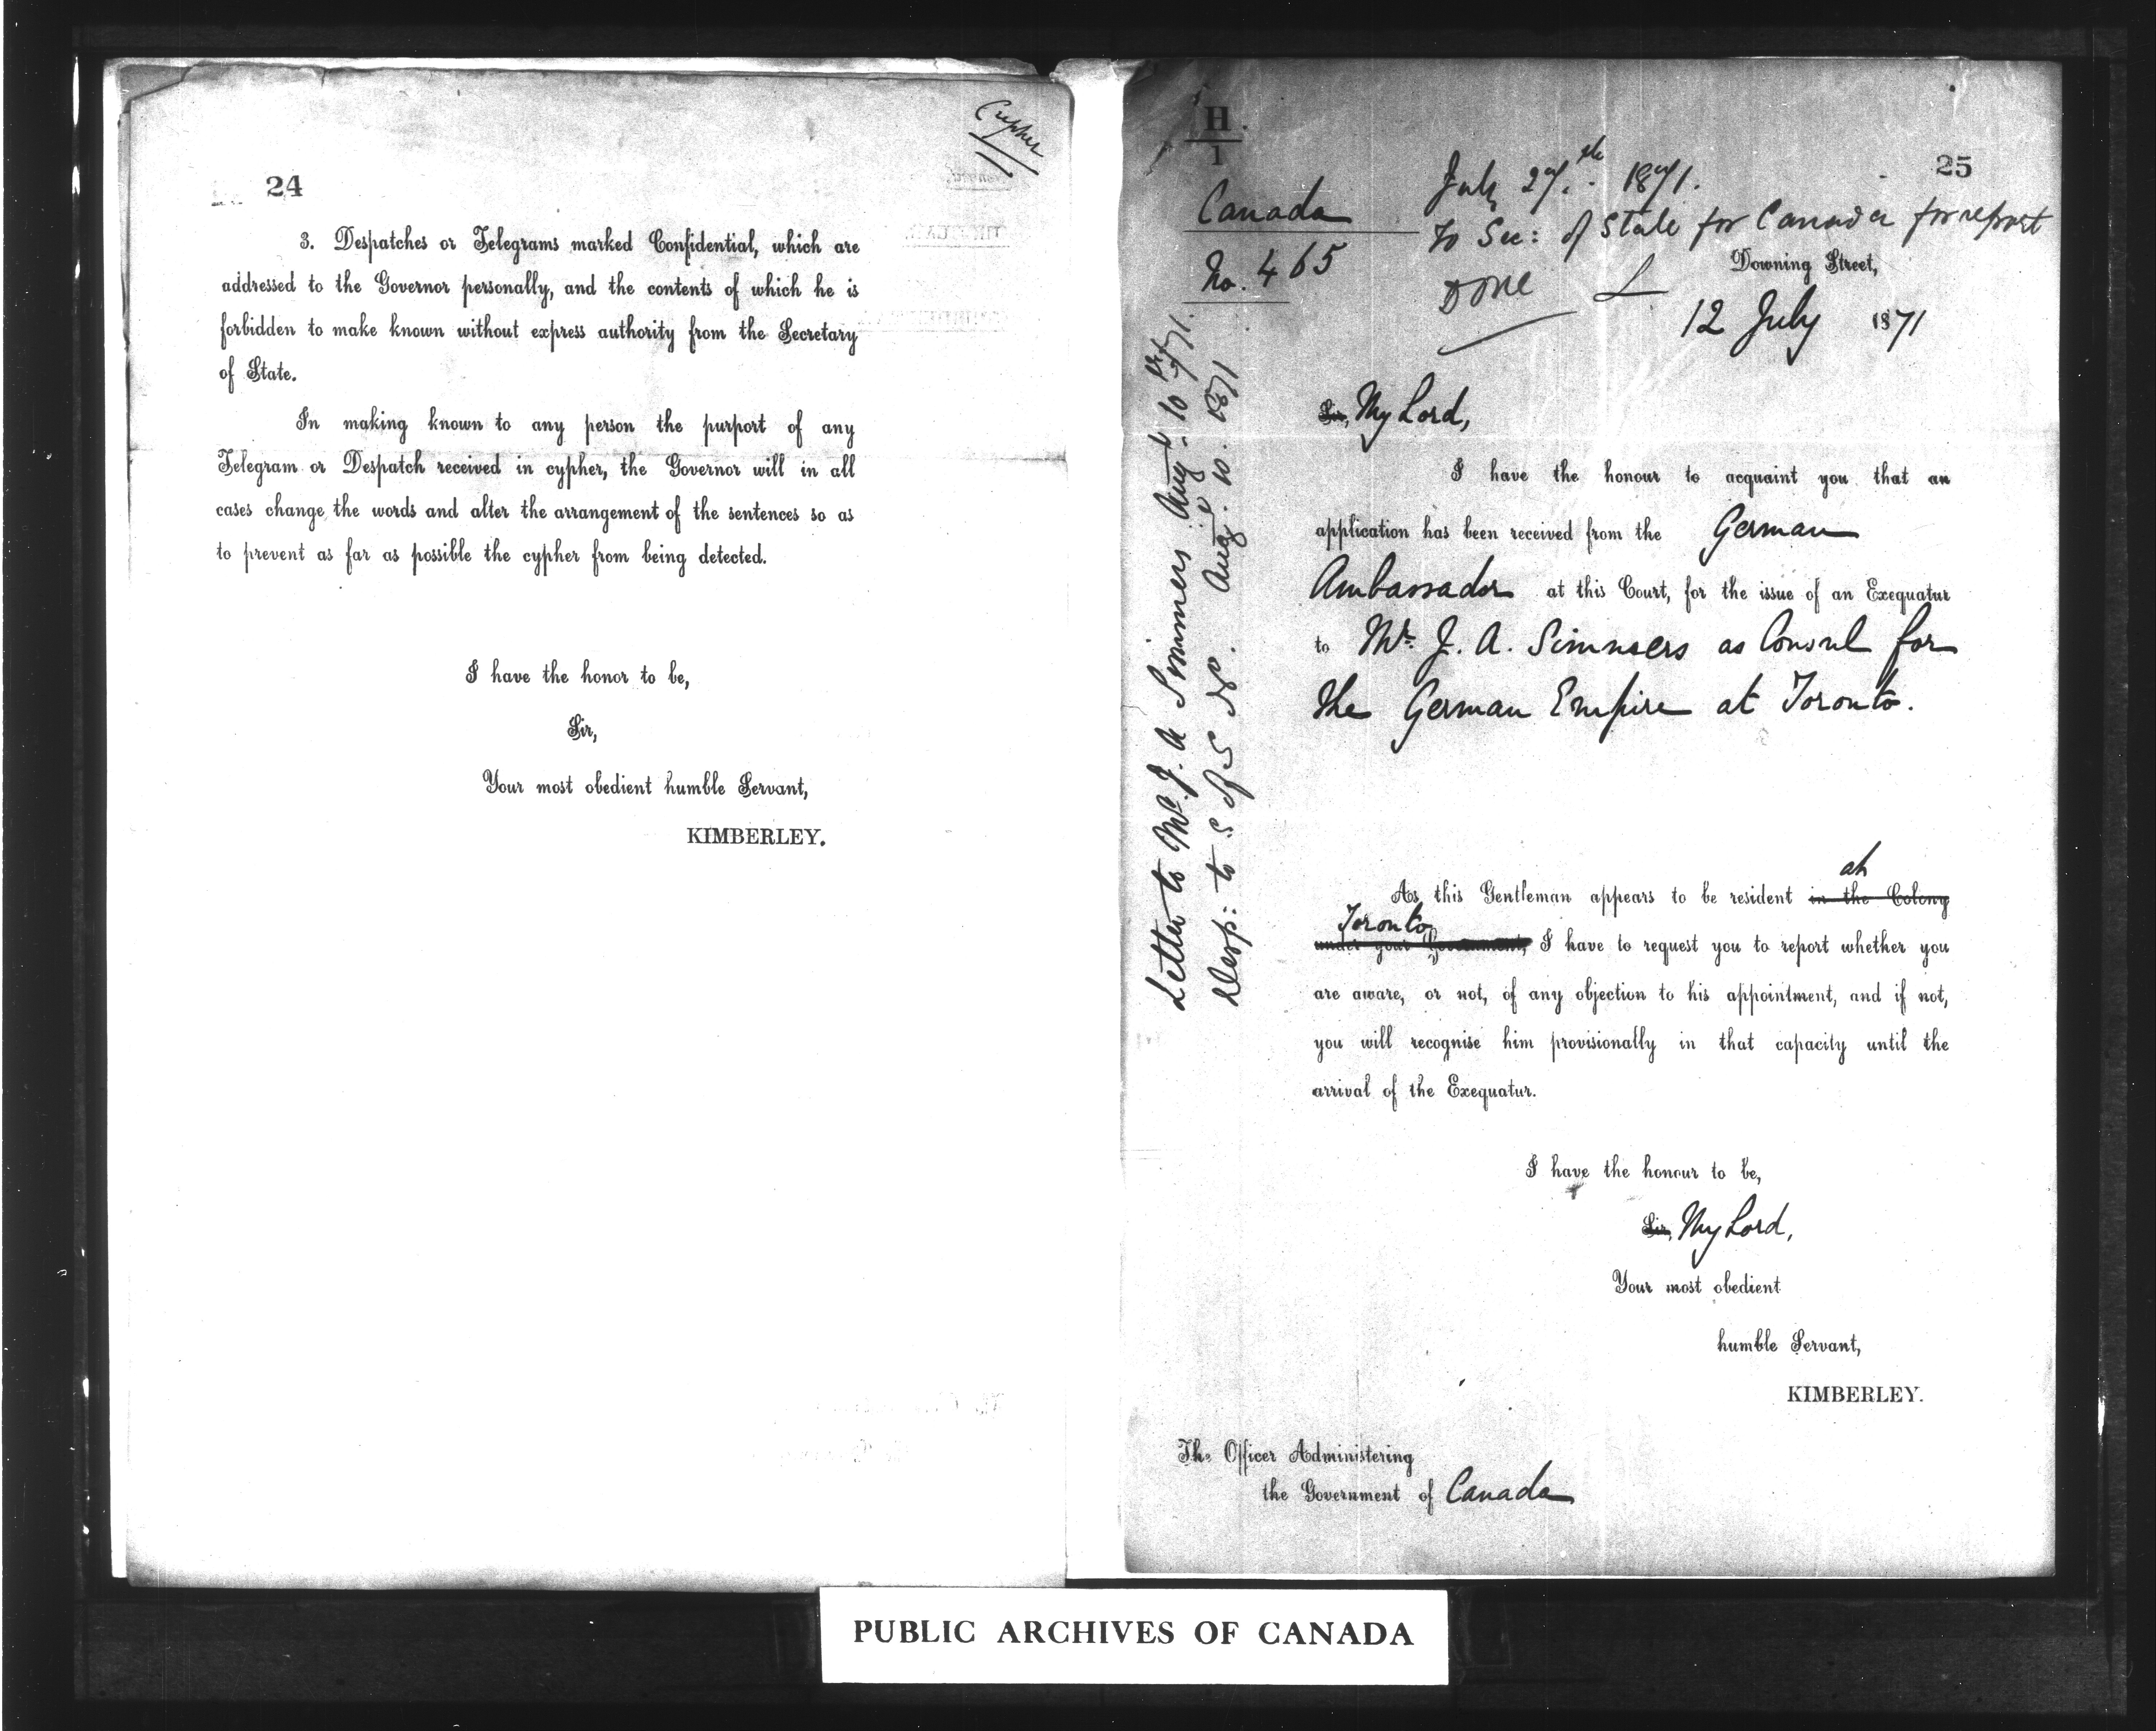 Cypher
24
3. Despatches or Telegrams marked Confidential, which are
addressed to the Governor personally, and the contents of which he is
forbidden to make known without express authority from the Secretary
of State.
In making known to any person the purport of any
Telegram or Despatch received in cypher, the Governor will in all
cases change the words and alter the arrangement of the sentences so as
to prevent as far as possible the cypher from being detected.
I have the honor to be,
Sir,
Your most obedient humble Servant,
KIMBERLEY.
H
1
25
July 27th 1871.
Canada
To Sec: of State for Canada for report
No. 465
Downing Street,
Done L
12 July 1871
Letter to Mr. J. A Simmers Aug
Desp: to S of S do. Aug. 10. 1871
Sir, My Lord,
I have the honour to acquaint you that an
application has been received from the German
Ambassador at this Court, for the issue of an Exequatur
to Mr. J. A. Simmers as Consul for
the German Empire at Toronto.
at
As this Gentleman appears to be resident in the Colony
Toronto
under your Government, I have to request you to report whether you
are aware, or not, of any objection to his appointment, and if not,
you will recognise him provisionally in that capacity until the
arrival of the Exequatur.
I have the honour to be,
Sir, My Lord,
Your most obedient
humble Servant,
KIMBERLEY.
The Officer Administering
the Government of Canada
PUBLIC ARCHIVES OF CANADA